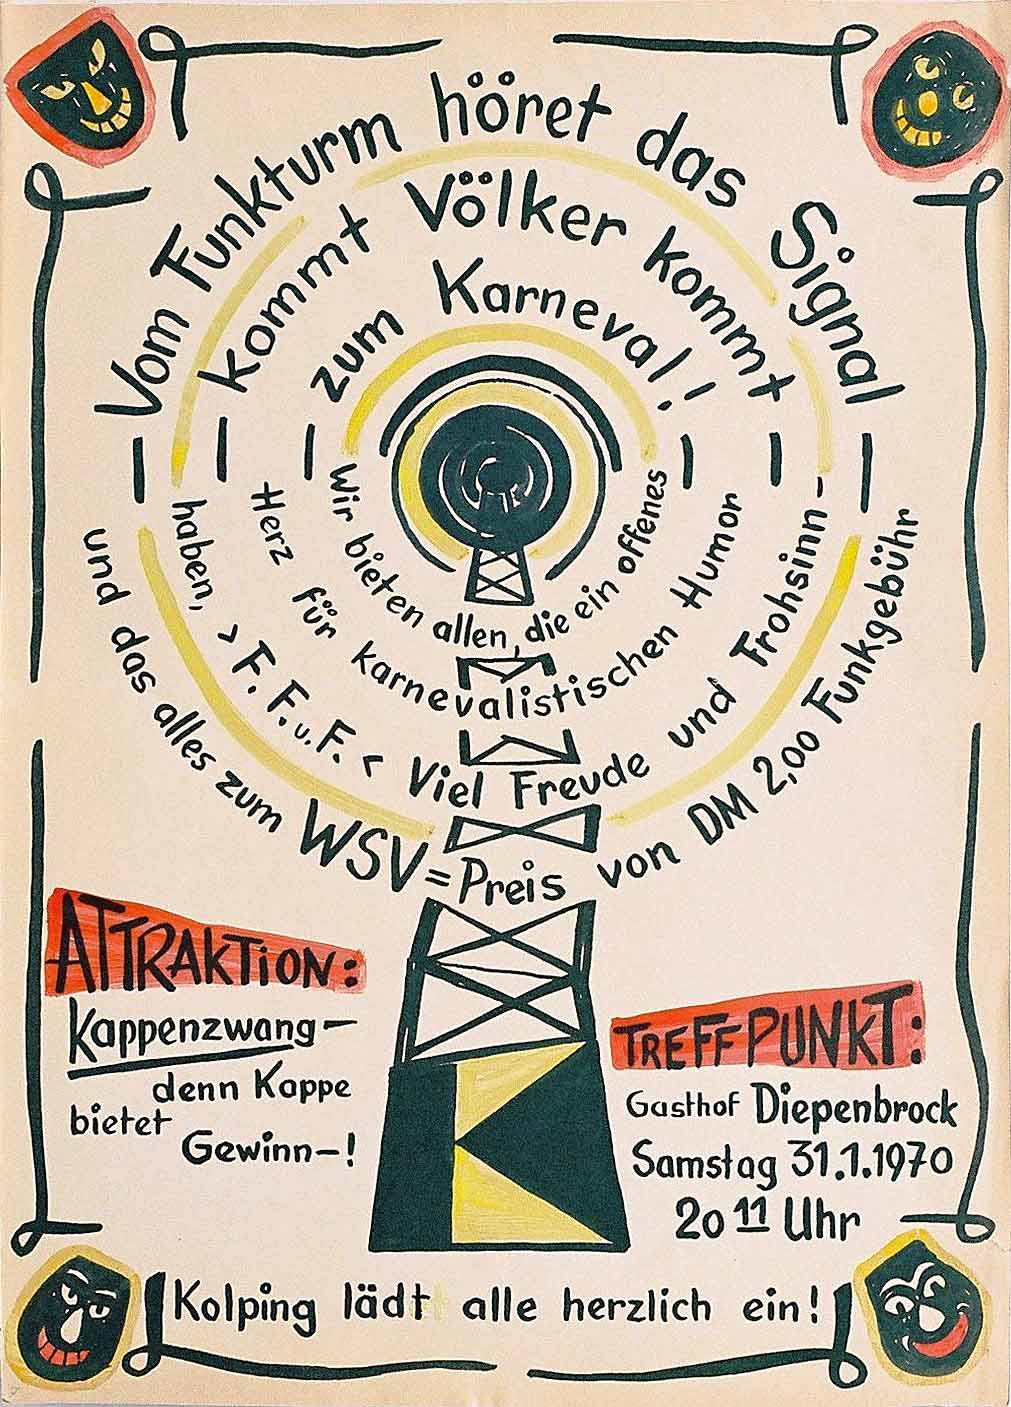 Vom Funkturm höret das Signal
kommt Völker kommt
zum Karneval!
Wir bieten allen, die ein offenes
Herz für karnevalistischen Humor
haben, > F. F. u. F. < Viel Freude und Frohsinn -
und das alles zum WSV = Preis von DM 2,00 Funkgebühr
ATTRAKTION:
Kappenzwang -
denn Kappe
bietet
Gewinn - !
TREFFPUNKT:
Gasthof Diepenbrock
Samstag 31.1.1970
20 11 Uhr
Kolping lädt alle herzlich ein!